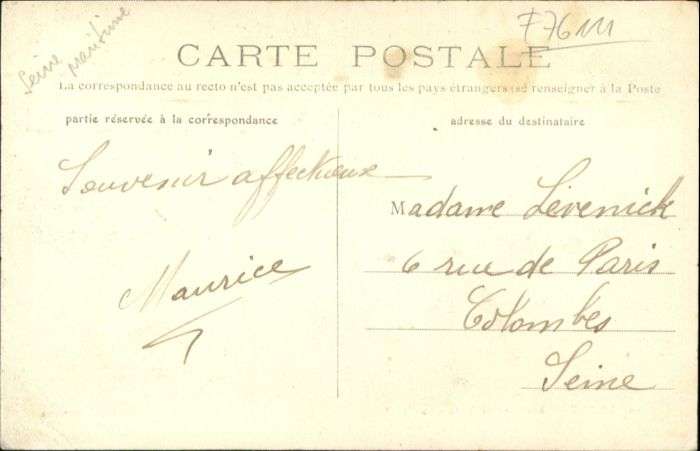 Seine
maritime
F76111
CARTE POSTALE
La correspondance au recto n'est pas acceptée par tous les pays étrangers (se renseigner à la Poste
partie réservée à la correspondance
adresse du destinataire
Souvenir affectueux
Maurice
Madame Levenick
6 rue de Paris
Colombes
Seine